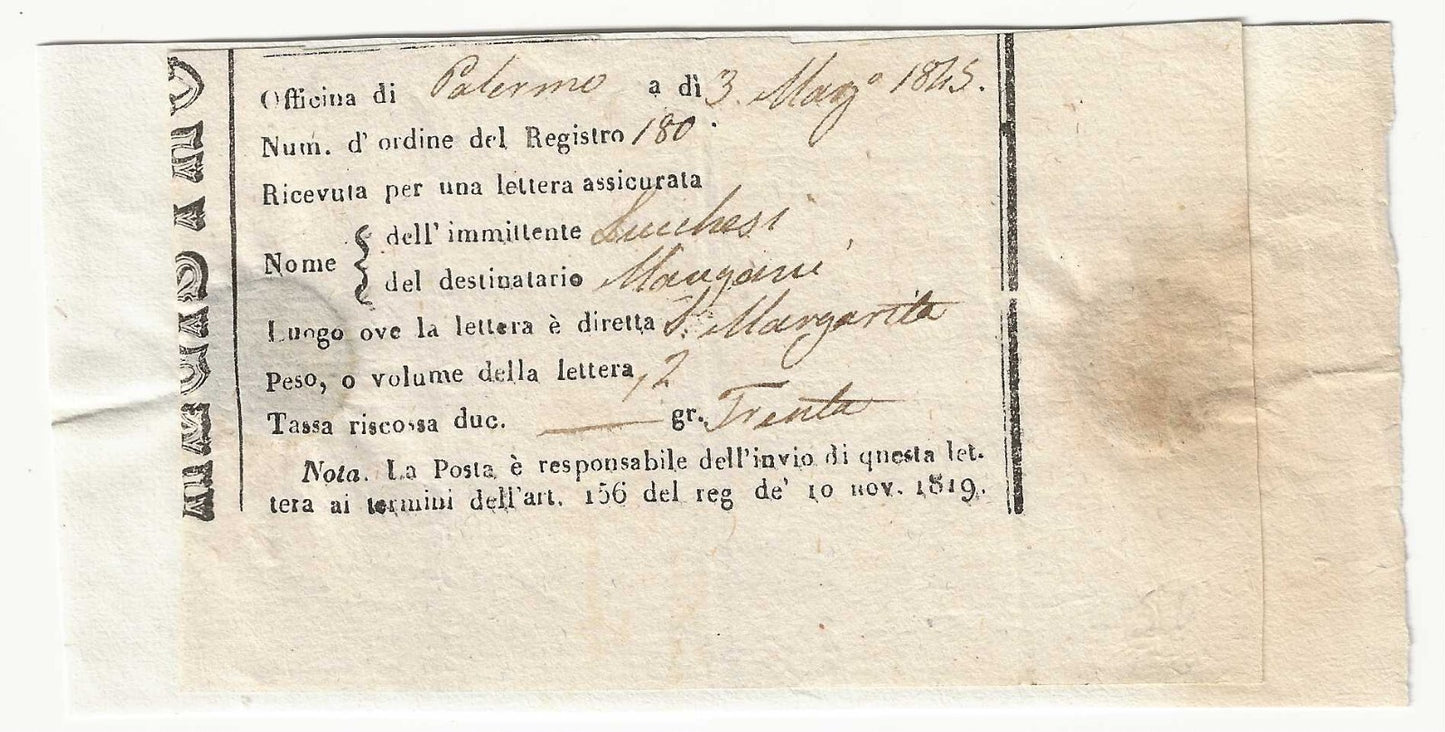 Officina di Palermo a dì 3. Marzo 1845.
Num. d' ordine del Registro 180.
Ricevuta per una lettera assicurata
Nome { dell' immittente Lucchesi
del destinatario Mangani
Luogo ove la lettera è diretta S. Margarita
Peso, o volume della lettera, 2
Tassa riscossa duc. —— gr. Trenta
Nota. La Posta è responsabile dell'invio di questa let-
tera ai termini dell'art. 156 del reg de' 10 nov. 1819.